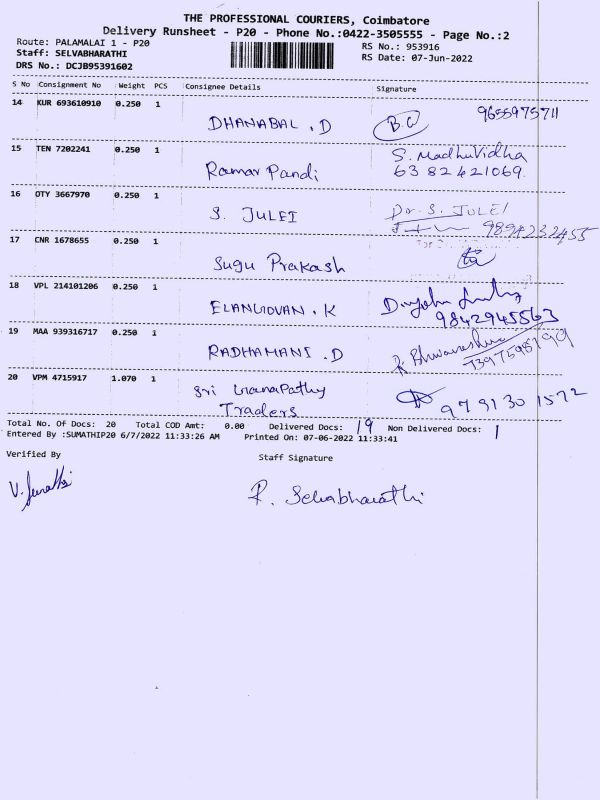 THE PROFESSIONAL COURIERS, Coimbatore
Delivery Runsheet - P20 - Phone No.:0422-3505555 - Page No.:2
Route: PALAMALAI 1 - P20
RS No.: 953916
Staff: SELVABHARATHI
RS Date: 07-Jun-2022
DRS No.: DCJB95391602
S No Consignment No Weight PCS Consignee Details Signature
14 KUR 693610910 0.250 1
DHANABAL . D B.G 9655975711
15 TEN 7202241 0.250 1
Ramar Pandi S. Madhuvidha
6382421069.
16 OTY 3667970 0.250 1
S. JULEI Dr. S. JULEI
9894232455
17 CNR 1678655 0.250 1
Sugu Prakash
18 VPL 214101206 0.250 1
ELANGOVAN . K
9842945563
19 MAA 939316717 0.250 1
RADHAMANI . D
20 VPM 4715917 1.070 1
Sri GanaPathy
Traders 9791301572
Total No. Of Docs: 20 Total COD Amt: 0.00 Delivered Docs: 19 Non Delivered Docs: 1
Entered By :SUMATHIP20 6/7/2022 11:33:26 AM Printed On: 07-06-2022 11:33:41
Verified By
Staff Signature
R. Selvabharathi